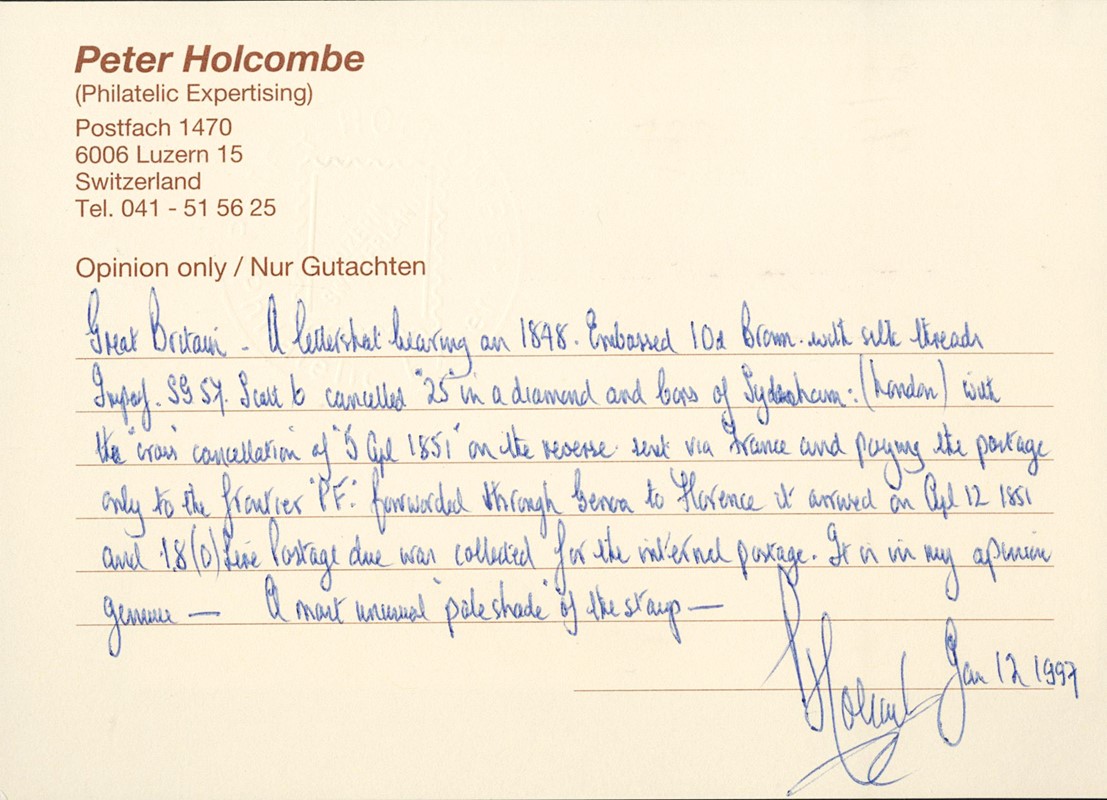 Peter Holcombe
(Philatelic Expertising)
Postfach 1470
6006 Luzern 15
Switzerland
Tel. 041 - 51 56 25
Opinion only / Nur Gutachten
Great Britain - A lettersheet bearing an 1848. Embossed 10d Brown. with silk threads
Imperf. SG 57. Scott 6 cancelled "25" in a diamond and bars of Sydenham: (London) with
the "cross cancellation" of "5 Apl 1851" on the reverse. sent via France and paying the postage
only to the frontier "PF." forwarded through Genoa to Florence it arrived on Apl 12 1851
and 1.8(0) Lire Postage due was collected for the internal postage. It is in my opinion
genuine — A most unusual "pale shade" of the stamp —
Holcombe Jan 12 1997